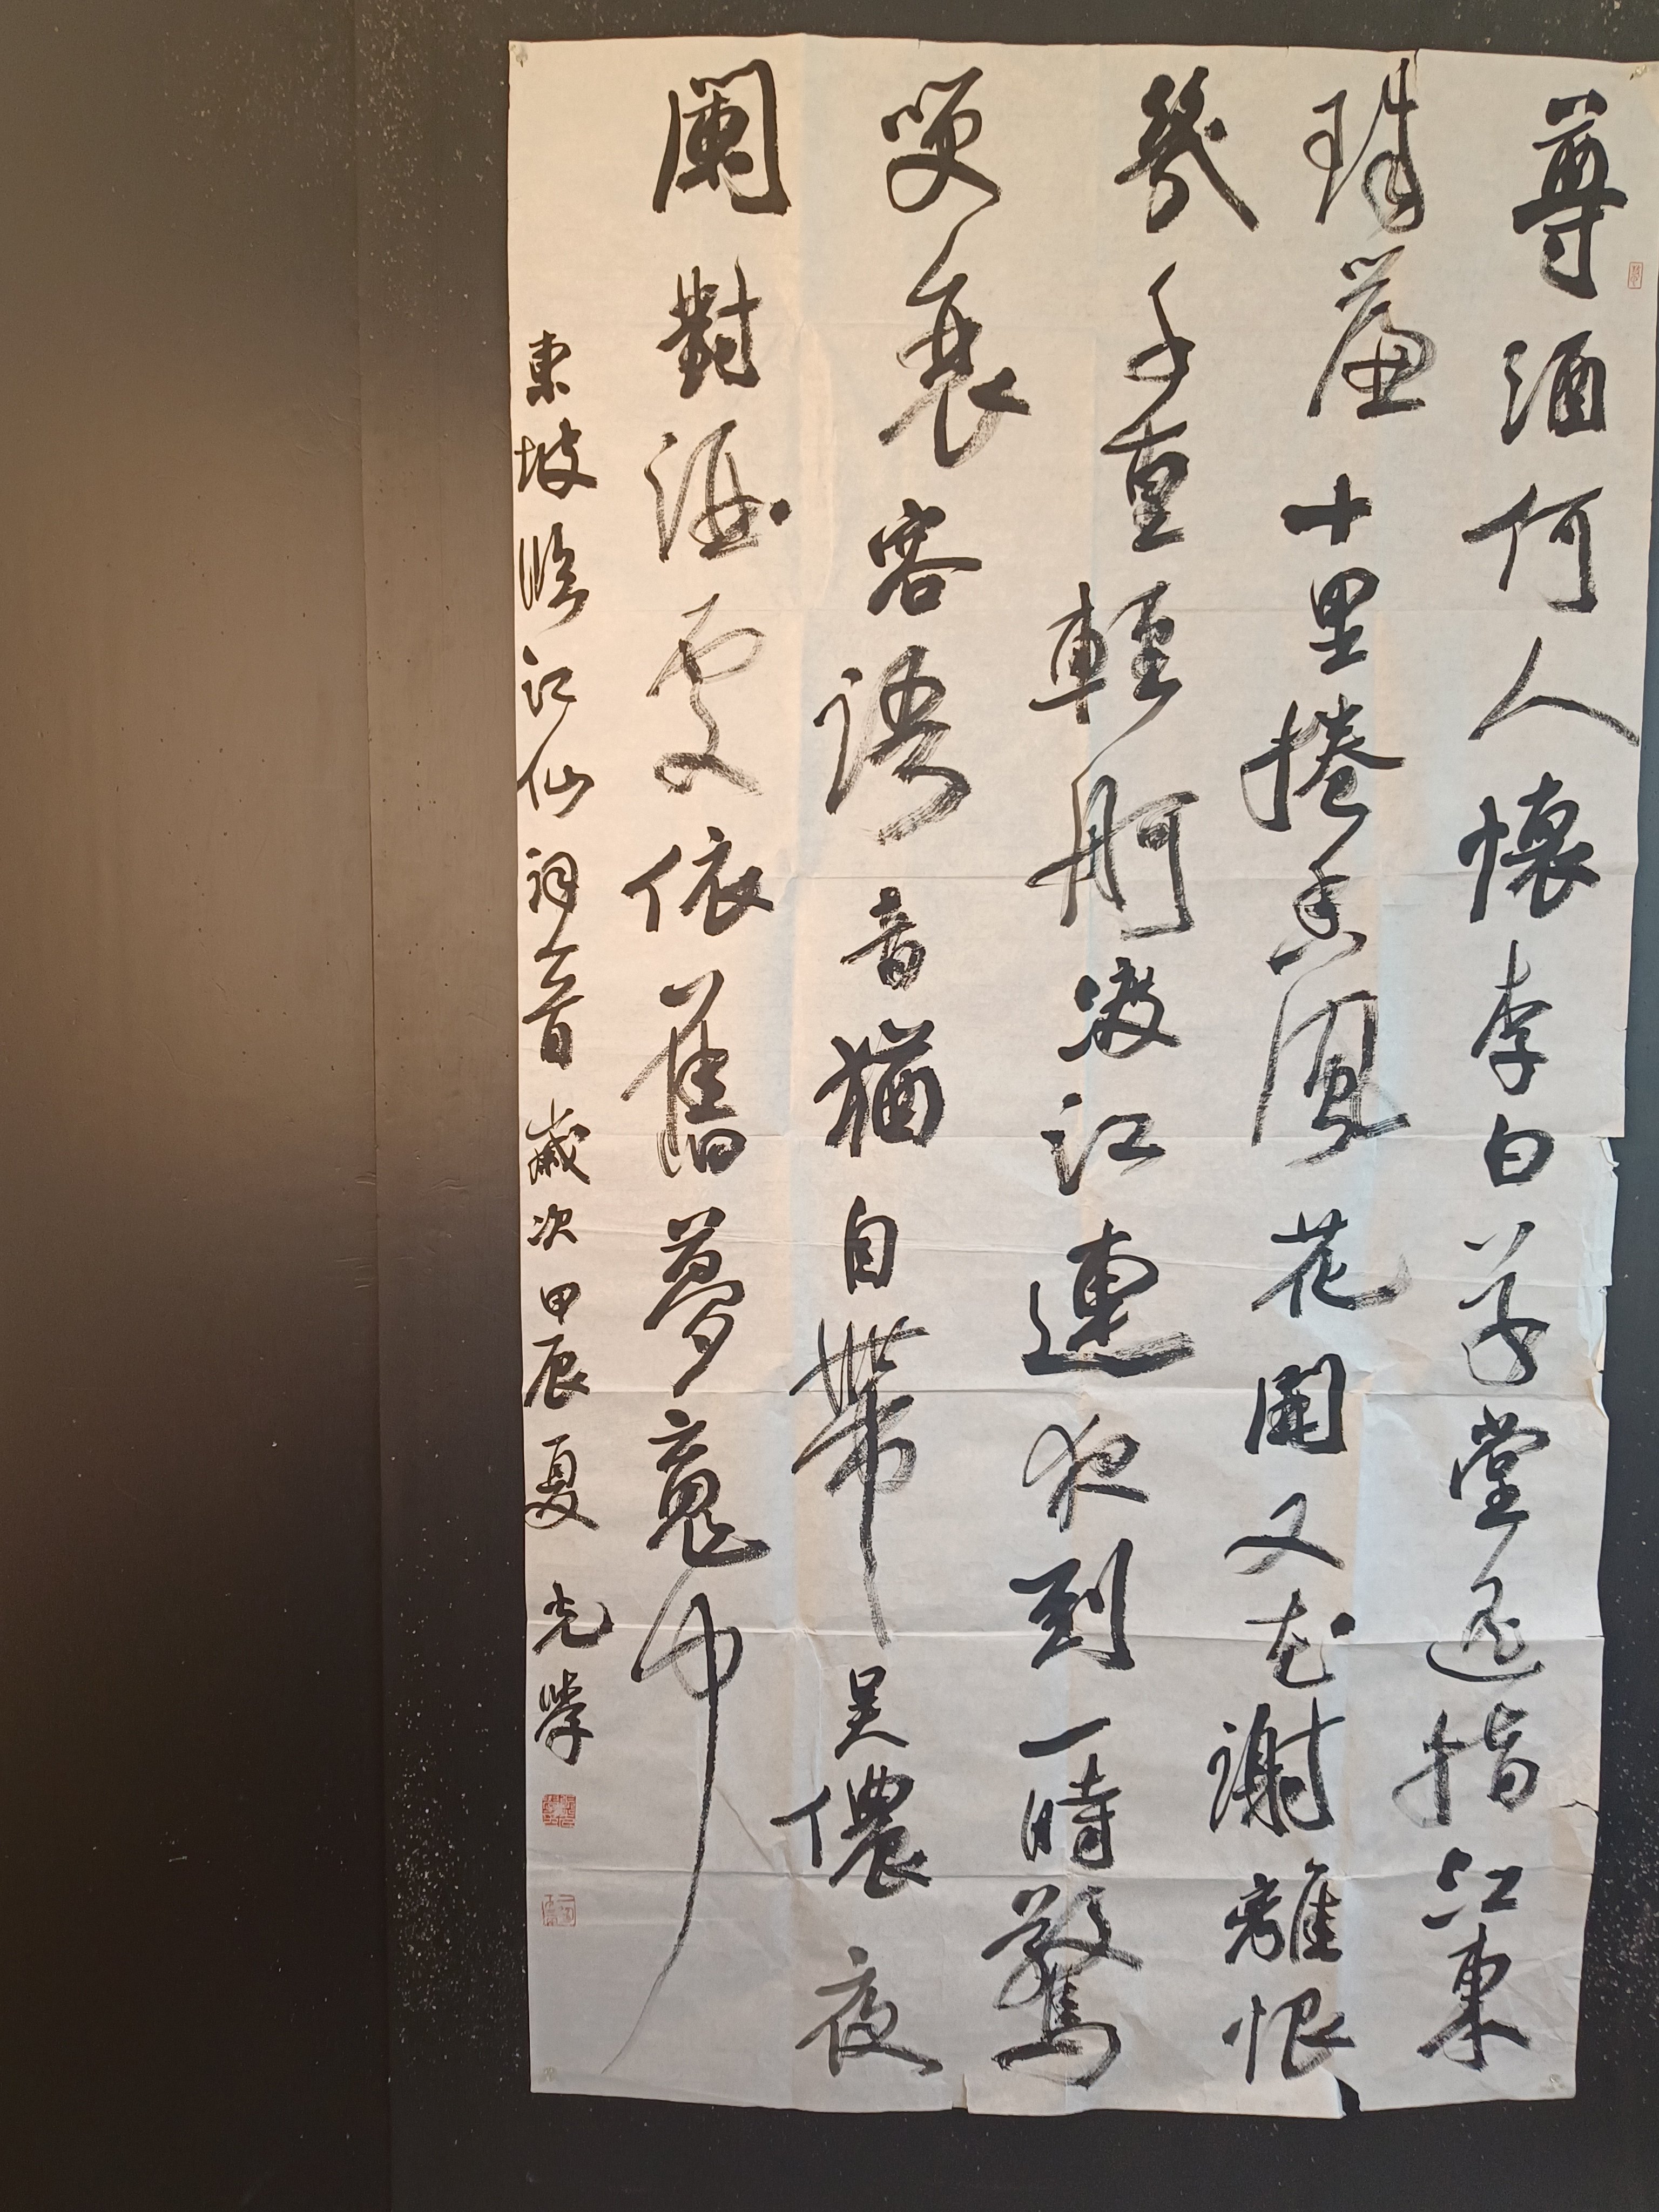 尊酒何人懷李白草堂遥指江東
珠簾十里捲香風花開又花謝離恨
幾千重輕舸渡江連夜到一時驚
咲衰容語音猶自帶吳儂夜
闌對酒處依舊夢魂中
東坡臨江仙詞一首 歲次甲辰夏 光